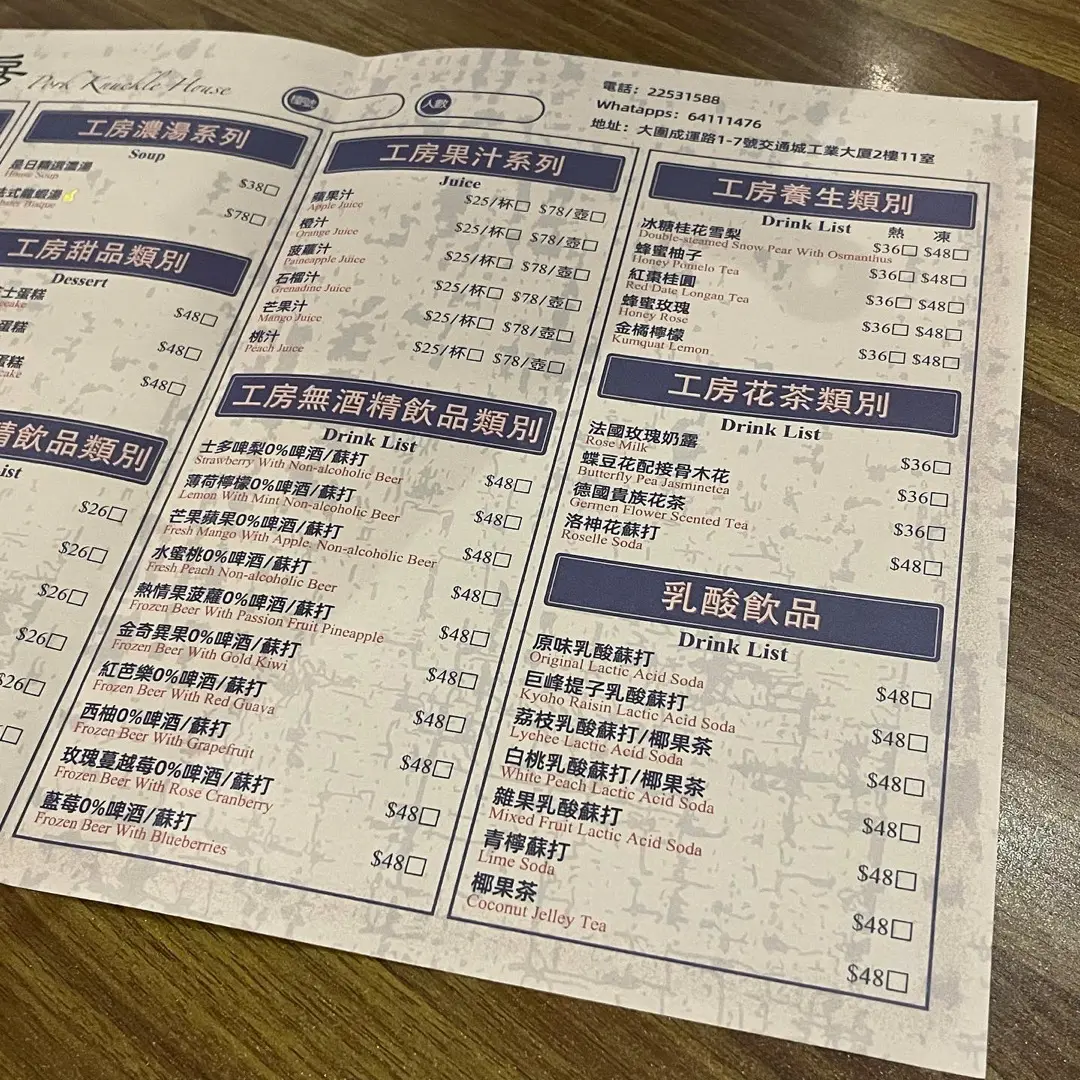 房 Pork Knuckle House
檯號
人數
電話：22531588
Whatapps：64111476
地址：大圍成運路1-7號交通城工業大厦2樓11室
工房濃湯系列
Soup
是日精選濃湯
House Soup
$38□
式龍蝦湯
Bisque
$78□
工房甜品類別
Dessert
士蛋糕
$48□
蛋糕
$48□
蛋糕
$48□
飲品類別
$26□
$26□
$26□
$26□
$26□
工房果汁系列
Juice
蘋果汁 $25/杯□ $78/壺□
Apple Juice
橙汁 $25/杯□ $78/壺□
Orange Juice
菠蘿汁 $25/杯□ $78/壺□
Paineapple Juice
石榴汁 $25/杯□ $78/壺□
Grenadine Juice
芒果汁 $25/杯□ $78/壺□
Mango Juice
桃汁 $25/杯□ $78/壺□
Peach Juice
工房無酒精飲品類別
Drink List
士多啤梨0%啤酒/蘇打 $48□
Strawberry With Non-alcoholic Beer
薄荷檸檬0%啤酒/蘇打 $48□
Lemon With Mint Non-alcoholic Beer
芒果蘋果0%啤酒/蘇打 $48□
Fresh Mango With Apple, Non-alcoholic Beer
水蜜桃0%啤酒/蘇打 $48□
Fresh Peach Non-alcoholic Beer
熱情果菠蘿0%啤酒/蘇打 $48□
Frozen Beer With Passion Fruit Pineapple
金奇異果0%啤酒/蘇打 $48□
Frozen Beer With Gold Kiwi
紅芭樂0%啤酒/蘇打 $48□
Frozen Beer With Red Guava
西柚0%啤酒/蘇打 $48□
Frozen Beer With Grapefruit
玫瑰蔓越莓0%啤酒/蘇打 $48□
Frozen Beer With Rose Cranberry
藍莓0%啤酒/蘇打 $48□
Frozen Beer With Blueberries
工房養生類別
Drink List 熱 凍
冰糖桂花雪梨 $36□ $48□
Double-steamed Snow Pear With Osmanthus
蜂蜜柚子 $36□ $48□
Honey Pomelo Tea
紅棗桂圓 $36□ $48□
Red Date Longan Tea
蜂蜜玫瑰 $36□ $48□
Honey Rose
金橘檸檬 $36□ $48□
Kumquat Lemon
工房花茶類別
Drink List
法國玫瑰奶露 $36□
Rose Milk
蝶豆花配接骨木花 $36□
Butterfly Pea Jasminetea
德國貴族花茶 $36□
Germen Flower Scented Tea
洛神花蘇打 $48□
Roselle Soda
乳酸飲品
Drink List
原味乳酸蘇打 $48□
Original Lactic Acid Soda
巨峰提子乳酸蘇打 $48□
Kyoho Raisin Lactic Acid Soda
荔枝乳酸蘇打/椰果茶 $48□
Lychee Lactic Acid Soda
白桃乳酸蘇打/椰果茶 $48□
White Peach Lactic Acid Soda
雜果乳酸蘇打 $48□
Mixed Fruit Lactic Acid Soda
青檸蘇打 $48□
Lime Soda
椰果茶 $48□
Coconut Jelley Tea